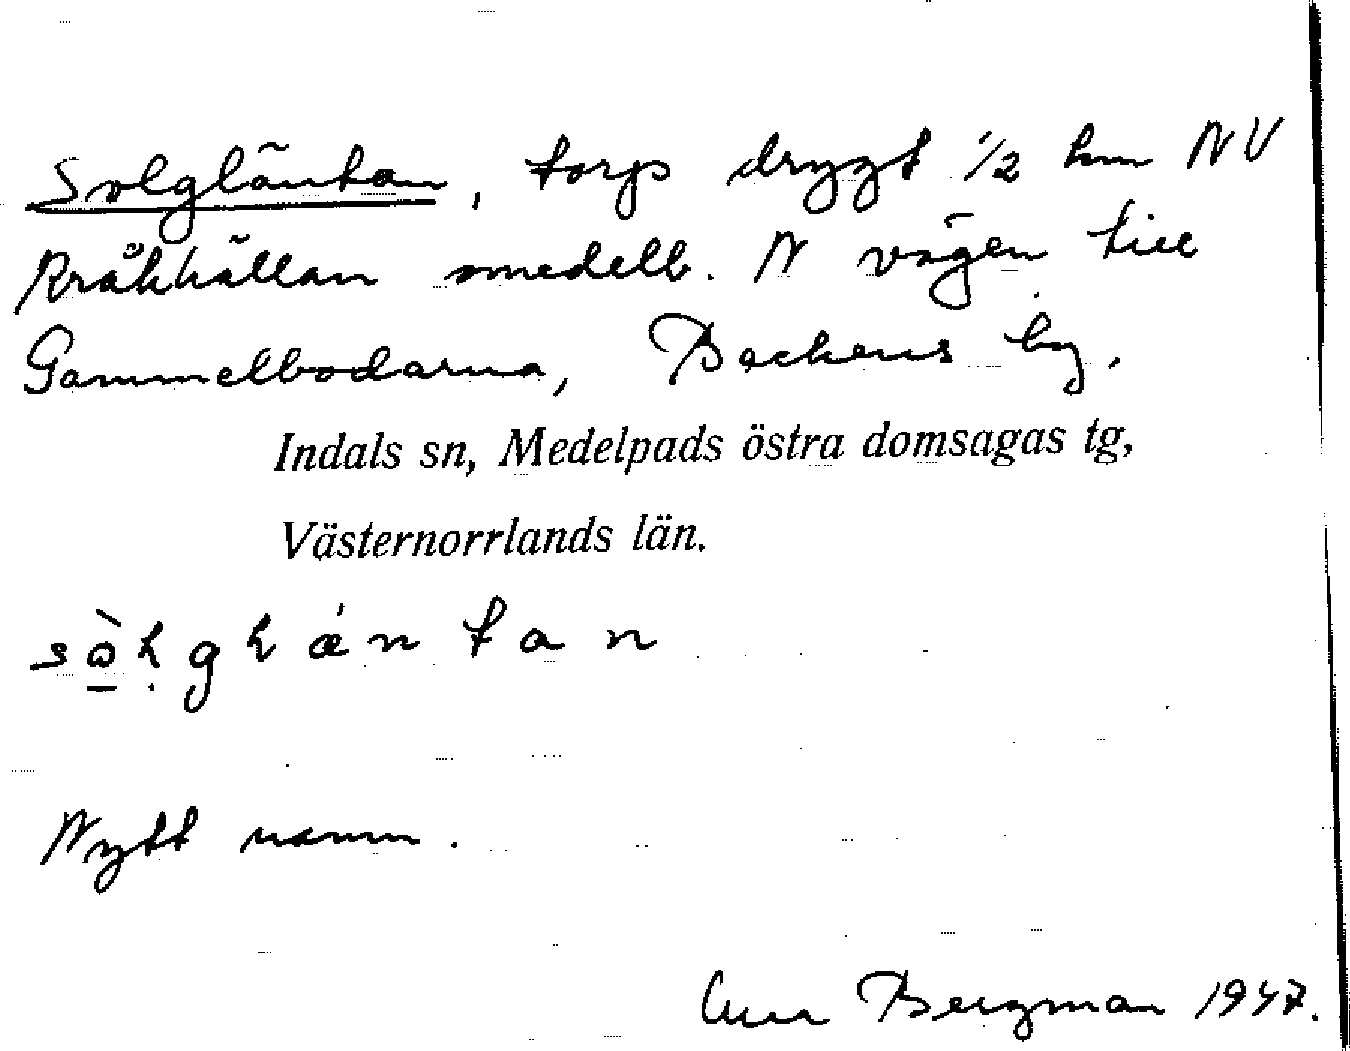 Solgläntan, torp drygt 1/2 km NV
Kråkhällan omedelb. N vägen till
Gammelbodarna, Backens by.
Indals sn, Medelpads östra domsagas tg,
Västernorrlands län.
Nytt namn.
Bergman 1947.